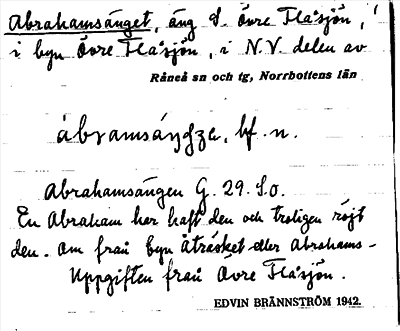 Abrahamsänget, äng S. Övre Flåsjön,
i byn Övre Flåsjön, i N.V. delen av
Råneå sn och tg, Norrbottens län
ábramsáŋgƶe, bf. n.
Abrahamsängen G. 29. S.o.
En Abraham har haft den och troligen röjt
den. Om från byn Åträsket eller Abrahams-
Uppgiften från Övre Flåsjön.
EDVIN BRÄNNSTRÖM 1942.